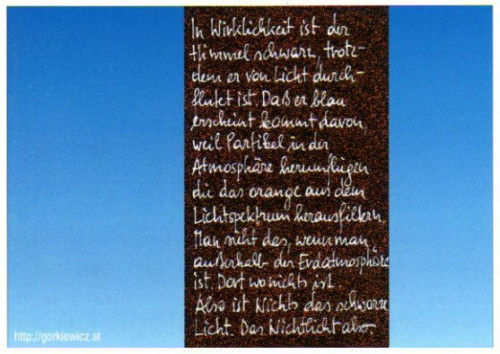 In Wirklichkeit ist der
Himmel schwarz, trotz-
dem er von Licht durch-
flutet ist. Daß er blau
erscheint kommt davon,
weil Partikel in der
Atmosphäre herumflügen
die das orange aus dem
Lichtspektrum herausfiltern.
Man sieht das, wenn man
außerhalb der Erdatmosphäre
ist. Dort wo nichts ist.
Also ist Nichts das schwarze
Licht. Das Nichtlicht also.
http://gorkiewicz.at